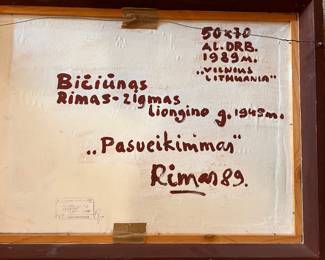 50x70
AL. DRB.
1989м.
„VILNIUS
LITHUANIA"
Bičiūnas
Rimas-Zigmas
Liongino g. 1945м.
„Pasveikinimas"
Rimas 89.